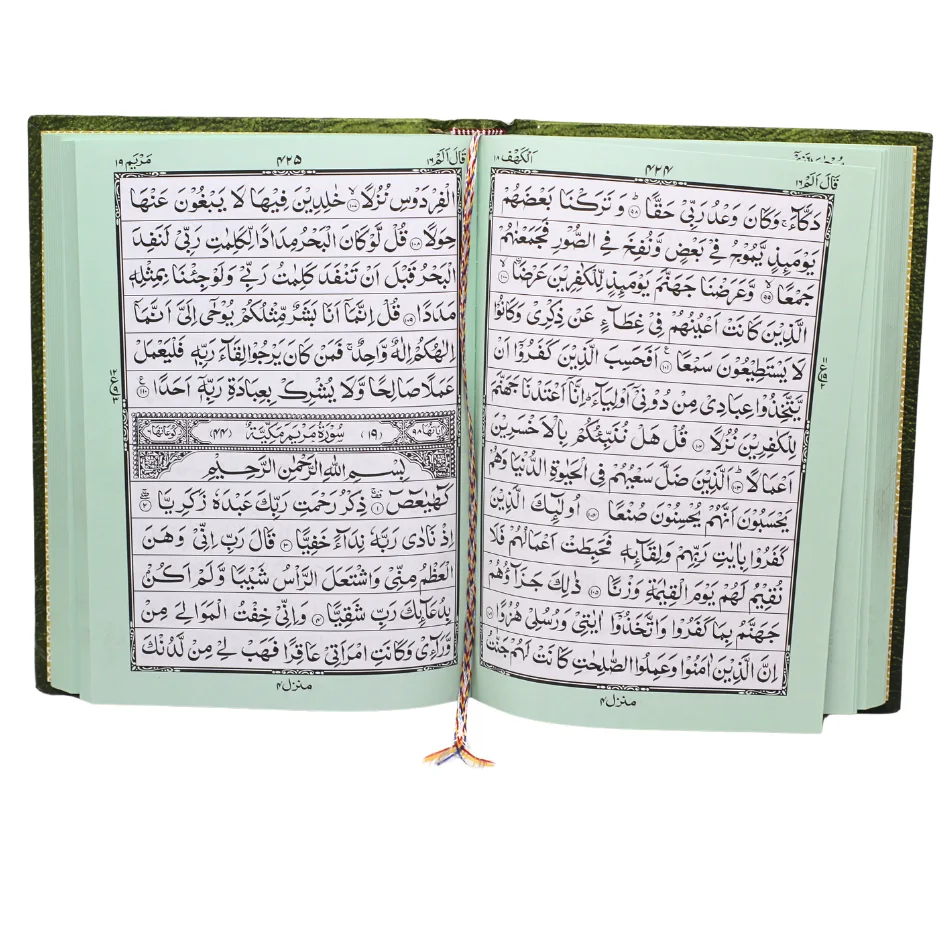 قَالَ اَلَمْ ١٦
۴۲۴
اَلْكَهْف ١٨
دَكَّآءَ ۚ وَكَانَ وَعْدُ رَبِّيْ حَقًّا ؕ﴿۹۸﴾ وَ تَرَكْنَا بَعْضَهُمْ
يَوْمَىِٕذٍ يَّمُوْجُ فِيْ بَعْضٍ وَّنُفِخَ فِي الصُّوْرِ فَجَمَعْنٰهُمْ
جَمْعًا ﴿۹۹﴾ وَّعَرَضْنَا جَهَنَّمَ يَوْمَىِٕذٍ لِّلْكٰفِرِيْنَ عَرْضَا ﴿۱۰۰﴾
اۨلَّذِيْنَ كَانَتْ اَعْيُنُهُمْ فِيْ غِطَآءٍ عَنْ ذِكْرِيْ وَكَانُوْا
لَا يَسْتَطِيْعُوْنَ سَمْعًا ﴿۱۰۱﴾ اَفَحَسِبَ الَّذِيْنَ كَفَرُوْۤا اَنْ
يَّتَّخِذُوْا عِبَادِيْ مِنْ دُوْنِيْۤ اَوْلِيَآءَ ؕ اِنَّاۤ اَعْتَدْنَا جَهَنَّمَ
لِلْكٰفِرِيْنَ نُزُلًا ﴿۱۰۲﴾ قُلْ هَلْ نُنَبِّئُكُمْ بِالْاَخْسَرِيْنَ
اَعْمَالًا ؕ﴿۱۰۳﴾ اَلَّذِيْنَ ضَلَّ سَعْيُهُمْ فِي الْحَيٰوةِ الدُّنْيَا وَهُمْ
يَحْسَبُوْنَ اَنَّهُمْ يُحْسِنُوْنَ صُنْعًا ﴿۱۰۴﴾ اُولٰٓىِٕكَ الَّذِيْنَ
كَفَرُوْا بِاٰيٰتِ رَبِّهِمْ وَلِقَآىِٕهٖ فَحَبِطَتْ اَعْمَالُهُمْ فَلَا
نُقِيْمُ لَهُمْ يَوْمَ الْقِيٰمَةِ وَزْنًا ﴿۱۰۵﴾ ذٰلِكَ جَزَآؤُهُمْ
جَهَنَّمُ بِمَا كَفَرُوْا وَاتَّخَذُوْۤا اٰيٰتِيْ وَرُسُلِيْ هُزُوًا ﴿۱۰۶﴾
اِنَّ الَّذِيْنَ اٰمَنُوْا وَعَمِلُوا الصّٰلِحٰتِ كَانَتْ لَهُمْ جَنّٰتُ
منزل ۴
قَالَ اَلَمْ ١٦
۴۲۵
مَرْيَم ١٩
الْفِرْدَوْسِ نُزُلًا ﴿۱۰۷﴾ خٰلِدِيْنَ فِيْهَا لَا يَبْغُوْنَ عَنْهَا
حِوَلًا ﴿۱۰۸﴾ قُلْ لَّوْ كَانَ الْبَحْرُ مِدَادًا لِّكَلِمٰتِ رَبِّيْ لَنَفِدَ
الْبَحْرُ قَبْلَ اَنْ تَنْفَدَ كَلِمٰتُ رَبِّيْ وَلَوْ جِئْنَا بِمِثْلِهٖ
مَدَدًا ﴿۱۰۹﴾ قُلْ اِنَّمَاۤ اَنَا بَشَرٌ مِّثْلُكُمْ يُوْحٰۤى اِلَيَّ اَنَّمَاۤ
اِلٰهُكُمْ اِلٰهٌ وَّاحِدٌ ۚ فَمَنْ كَانَ يَرْجُوْا لِقَآءَ رَبِّهٖ فَلْيَعْمَلْ
عَمَلًا صَالِحًا وَّلَا يُشْرِكْ بِعِبَادَةِ رَبِّهٖۤ اَحَدًا ﴿۱۱۰﴾
اٰيَاتُهَا ٩٨ (١٩) سُوْرَةُ مَرْيَمَ مَكِّيَّةٌ (٤٤) رُكُوْعَاتُهَا
بِسْمِ اللّٰهِ الرَّحْمٰنِ الرَّحِيْمِ
كٓهٰيٰعٓصٓ ﴿۱﴾ ذِكْرُ رَحْمَتِ رَبِّكَ عَبْدَهٗ زَكَرِيَّا ﴿۲﴾
اِذْ نَادٰى رَبَّهٗ نِدَآءً خَفِيًّا ﴿۳﴾ قَالَ رَبِّ اِنِّيْ وَهَنَ
الْعَظْمُ مِنِّيْ وَاشْتَعَلَ الرَّاْسُ شَيْبًا وَّلَمْ اَكُنْۢ
بِدُعَآىِٕكَ رَبِّ شَقِيًّا ﴿۴﴾ وَاِنِّيْ خِفْتُ الْمَوَالِيَ مِنْ
وَّرَآءِيْ وَكَانَتِ امْرَاَتِيْ عَاقِرًا فَهَبْ لِيْ مِنْ لَّدُنْكَ
منزل ۴